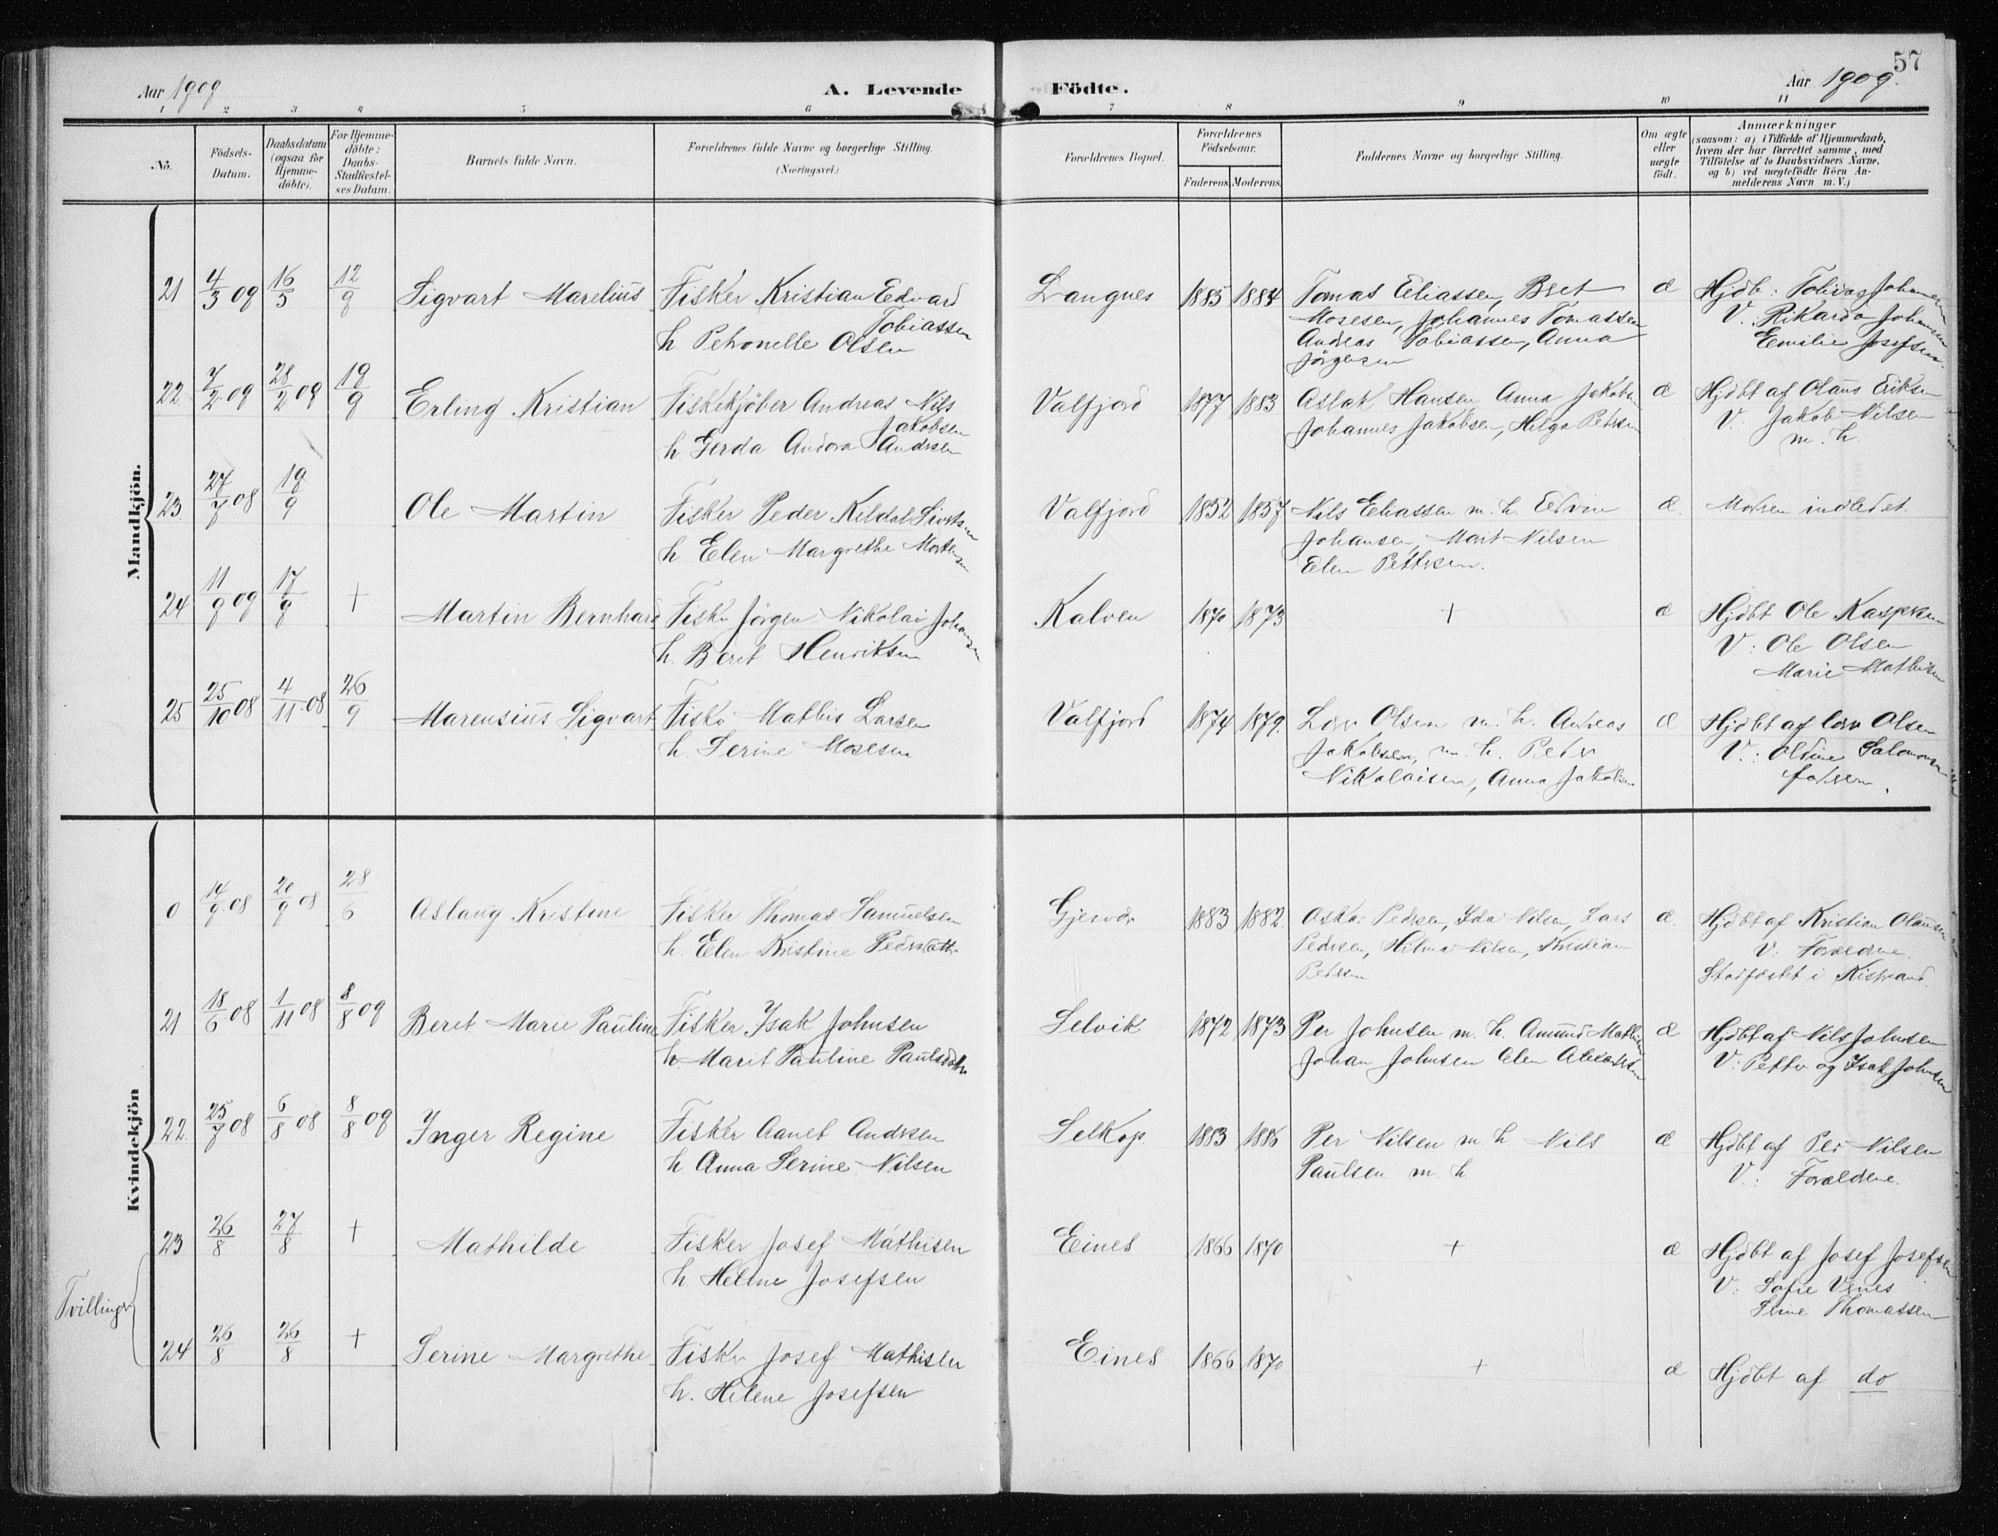 57
Aar 1909
A. Levende Födte.
Aar 1909.
1 2 3 4 5 6 7 8 9 10 11
No.
Födsels-Datum.
Daabsdatum (ogsaa for Hjemme-döbte).
For Hjemme-döbte: Daabs-Stadfæstel-ses Datum.
Barnets fulde Navn.
Forældrenes fulde Navne og borgerlige Stilling.
(Næringsvei.)
Forældrenes Bopæl.
Forældrenes Födselsaar.
Faderens. Moderens.
Faddernes Navne og borgerlige Stilling.
Om ægte eller uægte födt.
Anmærkninger
(saasom: a) i Tilfælde af Hjemmedaab,
hvem der har forrettet samme, med
Tilföielse af to Daabsvidners Navne,
og b) ved uægtefödte Börn An-
melderens Navn m. V.)
Mandkjön.
21 4/3 09 16/5 12/9 Sigvart Marelius Fisker Kristian Edvard Tobiassen
h Petronelle Olsen
Langnes 1885 1884 Tomas Eliassen, Bret
Mosesen, Johannes Tomassen
Andreas Tobiassen, Anna
Jörgensen
æ Hjdb: Johansen
V: Rikarda Johansen
Emilie Josefsen
22 7/2 09 28/2 09 19/9 Erling Kristian Fiskekjøber Andreas Nils Jakobsen
h Gerda Andora Andrsen
Valfjord 1877 1883 Aslak Hansen Anna Jakobs
Johannes Jakobsen, Helga Petersen
æ Hjdbt af Olaus Eriksen
V: Jakob Nilsen
m. h.
23 27/7 08 19/9 Ole Martin Fisker Peder Kildal Sivertsen
h. Elen Margrethe Mortensen
Valfjord 1852 1857 Nils Eliassen m. h. Edvin
Johansen, Marit Nilsen
Elen Pettersen.
æ. Modren indledet.
24 11/9 09 17/9 + Martin Bernhard Fisker Jörgen Nikolai Johansen
h. Beret Henriksen
Kalven 1870 1873 + æ Hjdbt Ole Kaspersen
V: Ole Olsen
Marie Mathisen
25 25/10 08 4/11 08 26/9 Marensius Sigvart Fisker Mathis Larsen
h. Serine Mosesen
Valfjord 1874 1879. Lars Olsen m. h. Andreas
Jakobsen, m h. Peder
Nikolaisen, Anna Jakobsen
æ Hjdbt af Lars Olsen
V: Oldine Salomonsen
fadren.
Kvindekjön
0 14/9 08 20/9 08 28/6 Aslaug Kristine Fisker Thomas Samuelsen
h. Elen Kristine Pedersdatter
Gjesvær 1883 1882 Askar Pedrsen, Ida Nilsen, Lars
Pedrsen, Hilma Nilsen, Kristian
Petersen
æ. Hjdbt af Kristian Olaussen
V: Forældrene.
Stadfæstet i Kistrand.
21 18/6 08 1/11 08 8/8 09 Beret Marie Pauline Fisker Isak Johnsen
h. Marit Pauline Paulsdtr
Selvik 1872 1873 Per Johnsen m. h. Amund Mathisen
Johan Johnsen Elen Alexandersen
æ Hjdbt af Nils Johnsen
V: Petter og Isak Johnsen
22. 25/7 08 6/8 08 8/8 09 Inger Regine Fisker Aanet Andrsen
h Anna Serine Nilsen
Selkop. 1883 1886 Per Nilsen m h. Nils
Paulsen m. h
æ Hjdbt af Per Nilsen
V: Forældrene.
Tvillinger
23 26/8 27/8 + Mathilde Fisker Josef Mathisen
h. Helene Josefsen
Eines 1866 1870 + æ Hjdbt af Josef Josefsen
V: Sofie Venes
Serine Thomassen
24 26/8 26/8 + Serine Margrethe Fisker Josef Mathisen
h. Helene Josefsen
Eines 1866 1870 + æ Hjdbt af do